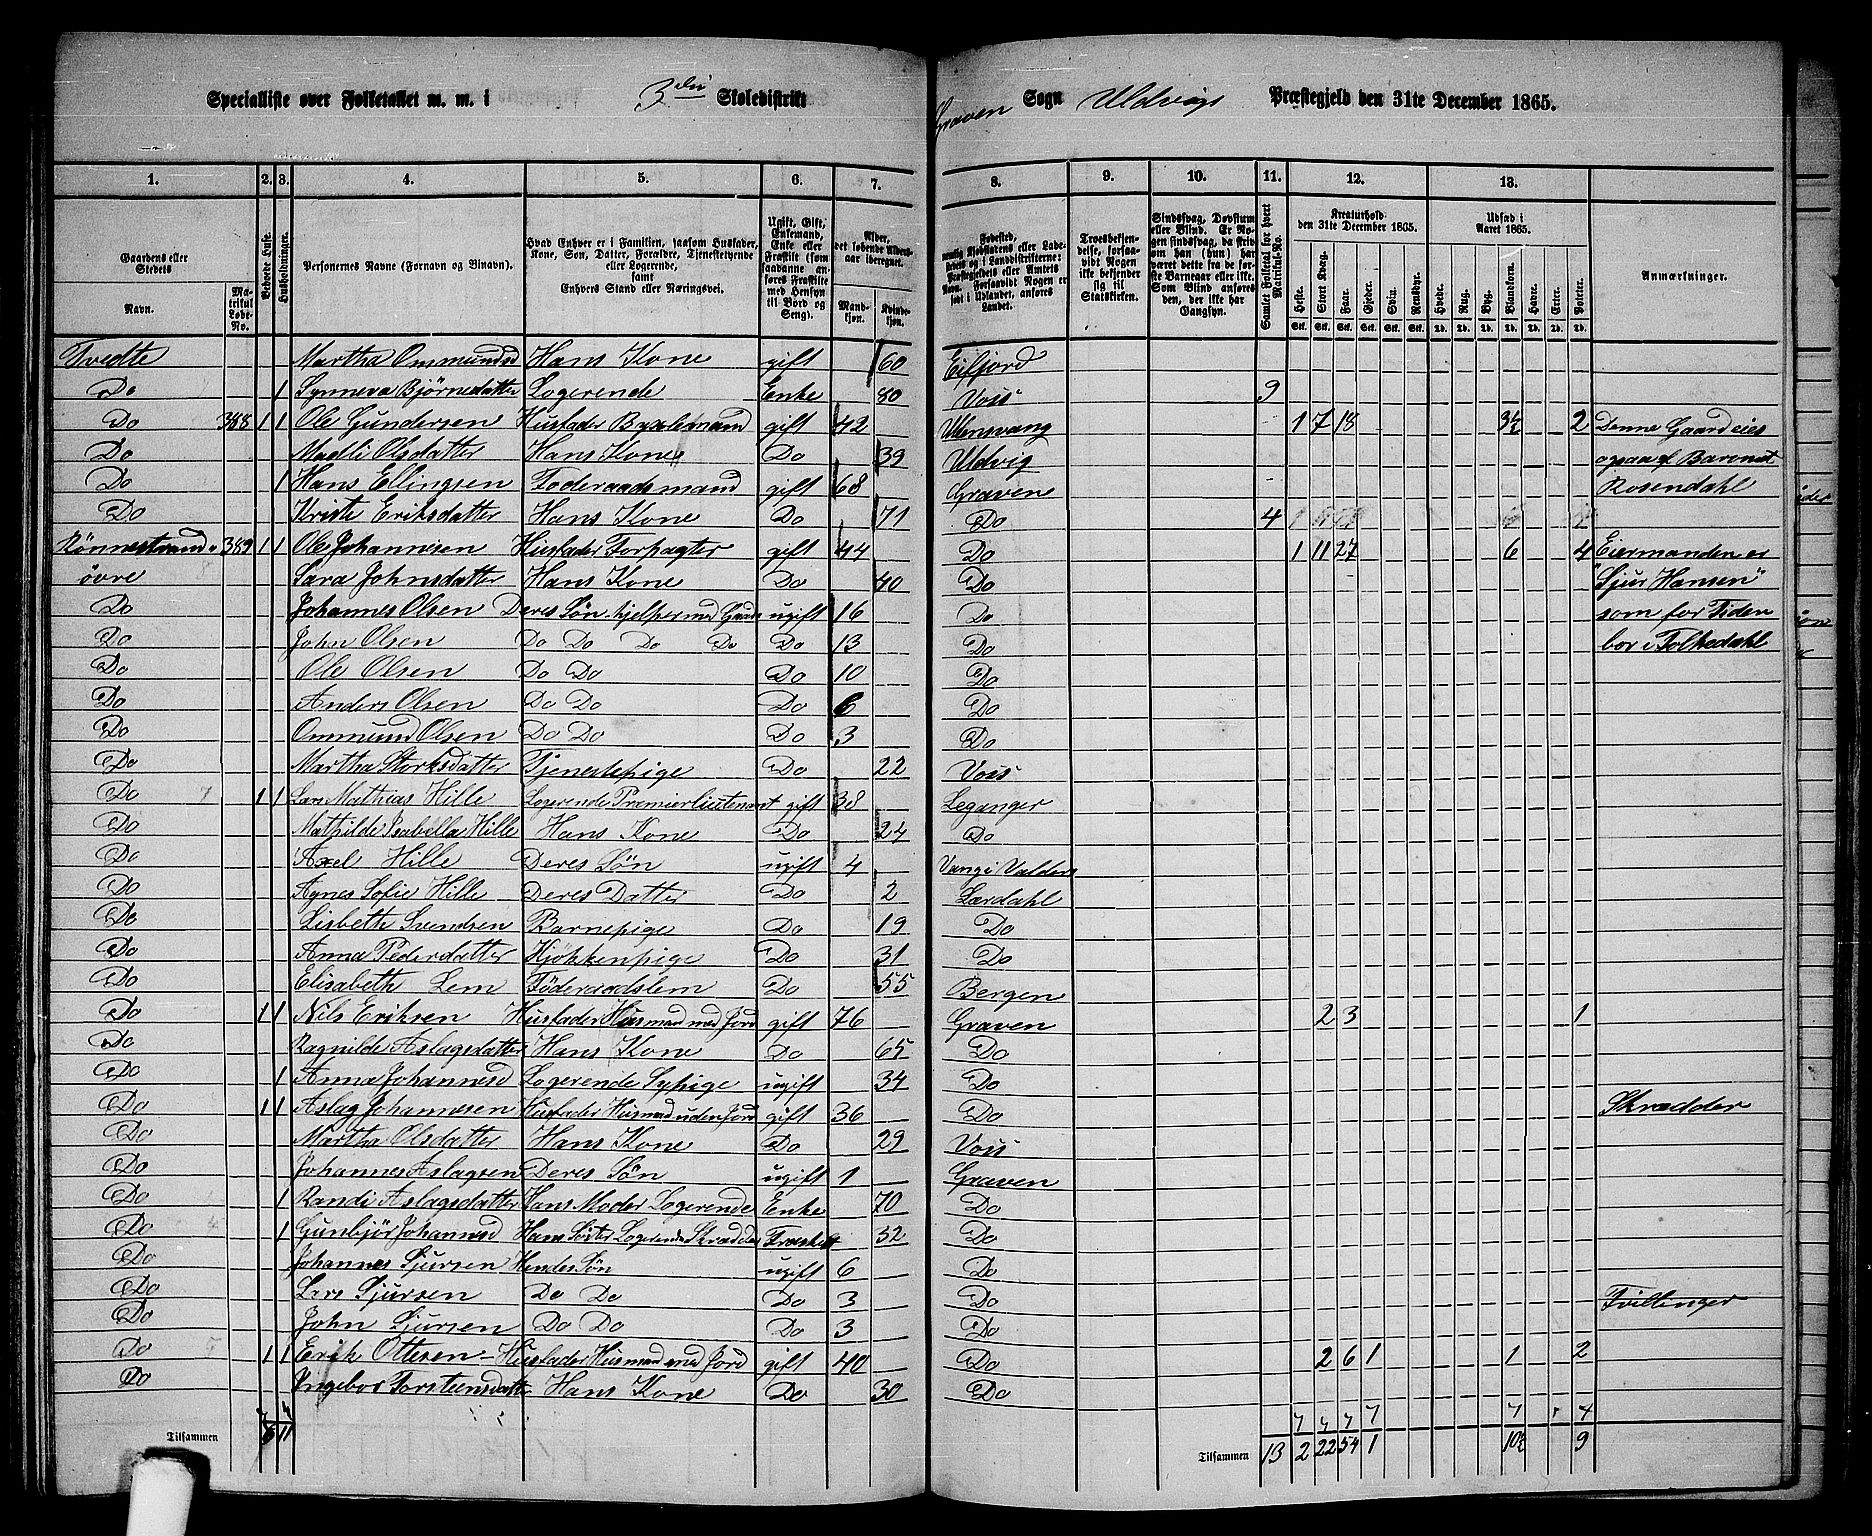 Specialliste over Folketallet m. m. i 3die Skoledistrikt Graven Sogn Uldvigs Præstegjeld den 31te December 1865.
1. 2. 3. 4. 5. 6. 7. 8. 9. 10. 11. 12. 13.
Gaardens eller Stedets
Navn.
Matrikul Løbe-No.
Bebøede Huse.
Husholdninger.
Personernes Navne (Fornavn og Binavn).
Hvad Enhver er i Familien, saasom Husfader, Kone, Søn, Datter, Forældre, Tjenestetyende eller Logerende, samt Enhvers Stand eller Næringsvei.
Ugift, Gift, Enkemand, Enke eller Fraskilt (som saadanne anføres Fraskilte med Hensyn til Bord og Seng).
Alder, det løbende Alders-aar iberegnet.
Mand-kjøn. Kvinde-kjøn.
Fødested,
Troesbekjendelse, forsaavidt Nogen ikke bekjender sig til Statskirken.
Sindssvag, Døvstum eller Blind. Er Nogen sindssvag, da skrives om han (hun) har været dette fra de første Barneaar eller ikke. Som Blind anføres den, der ikke har Gangsyn.
Samlet Folketal for hvert Matrikul-No.
Kreaturhold den 31te December 1865.
Heste. Stort Kvæg. Faar. Gjeder. Svin. Rensdyr.
Udsæd i Aaret 1865.
Hvede. Rug. Byg. Blandkorn. Havre. Erter. Poteter.
Anmærkninger.
Tvedte Martha Ommundsd Hans Kone gift 60 Eifjord
Do 1 Synneva Bjørnsdatter Logerende Enke 80 Voss 9
Do 388 1 1 Ole Gundersen Husfader gift 42 Ullensvang 1 7 18 3½ 2 Denne Gaard eies
Do Madli Olsdatter Hans Kone Do 39 Uldvig ogsaa af Baronet
Do 1 Hans Ellingsen Føderaadsmand gift 68 Gravene Rosendahl
Do Kriste Eriksdatter Hans Kone Do 71 Do 4
Rønnestrand 389 1 1 Ole Johannesen Husfader Forpagter gift 44 Do 1 11 27 6 4 Eiermanden er
øvre Sara Johnsdatter Hans Kone Do 40 Do "Sjur Hansen"
Do Johannes Olsen Deres Søn hjelper med Gaard ugift 16 Do som for Tiden
Do John Olsen Do Do Do Do Do 13 Do bor i Folkedahl
Do Ole Olsen Do Do Do 10 Do
Do Anders Olsen Do Do Do 6 Do
Do Ommund Olsen Do Do Do 3 Do
Do Martha Storksdatter Tjenestepige Do 22 Voss
Do 1 1 Lars Mathias Hille Logerende Premierlieutenant gift 38 Leganger
Do Mathilde Isabella Hille Hans Kone Do 24 Do
Do Axel Hille Deres Søn ugift 4 Vang i Valders
Do Agnes Sofie Hille Deres Datter Do 2 Lærdahl
Do Lisbeth Svendsen Barnepige Do 19 Do
Do Anna Pedersdatter Kjøkkenpige Do 31 Do
Do Elisabeth Lem Føderaadslem Do 55 Bergen
Do 1 1 Nils Eriksen Husfader Husmand med Jord gift 76 Graven 2 3 1
Do Ragnilde Aslagsdatter Hans Kone Do 65 Do
Do 1 Anna Johannesd Logerende Sypige ugift 34 Do
Do 1 1 Aslag Johannesen Husfader Husmand uden Jord gift 36 Do Skrædder
Do Martha Olsdatter Hans Kone Do 29 Voss
Do Johannes Aslagsen Deres Søn ugift 1 Graven
Do 1 Randi Aslagsdatter Hans Moder Logerende Enke 70 Do
Do 1 Gunbjør Johannesd Hans Søster Logerende Skrædder Fraskilt 32 Do
Do Johannes Sjursen Hendes Søn ugift 6 Do
Do Lars Sjursen Do Do Do 3 Do Tvillinger
Do John Sjursen Do Do Do 3 Do
Do 1 1 Erik Ottesen Husfader Husmand med Jord gift 40 Do 2 6 1 1 2
Do Ingebor Torsteinsdatt Hans Kone Do 30 Do
Tilsammen 6 11 Tilsammen 13 2 22 54 1 10½ 9